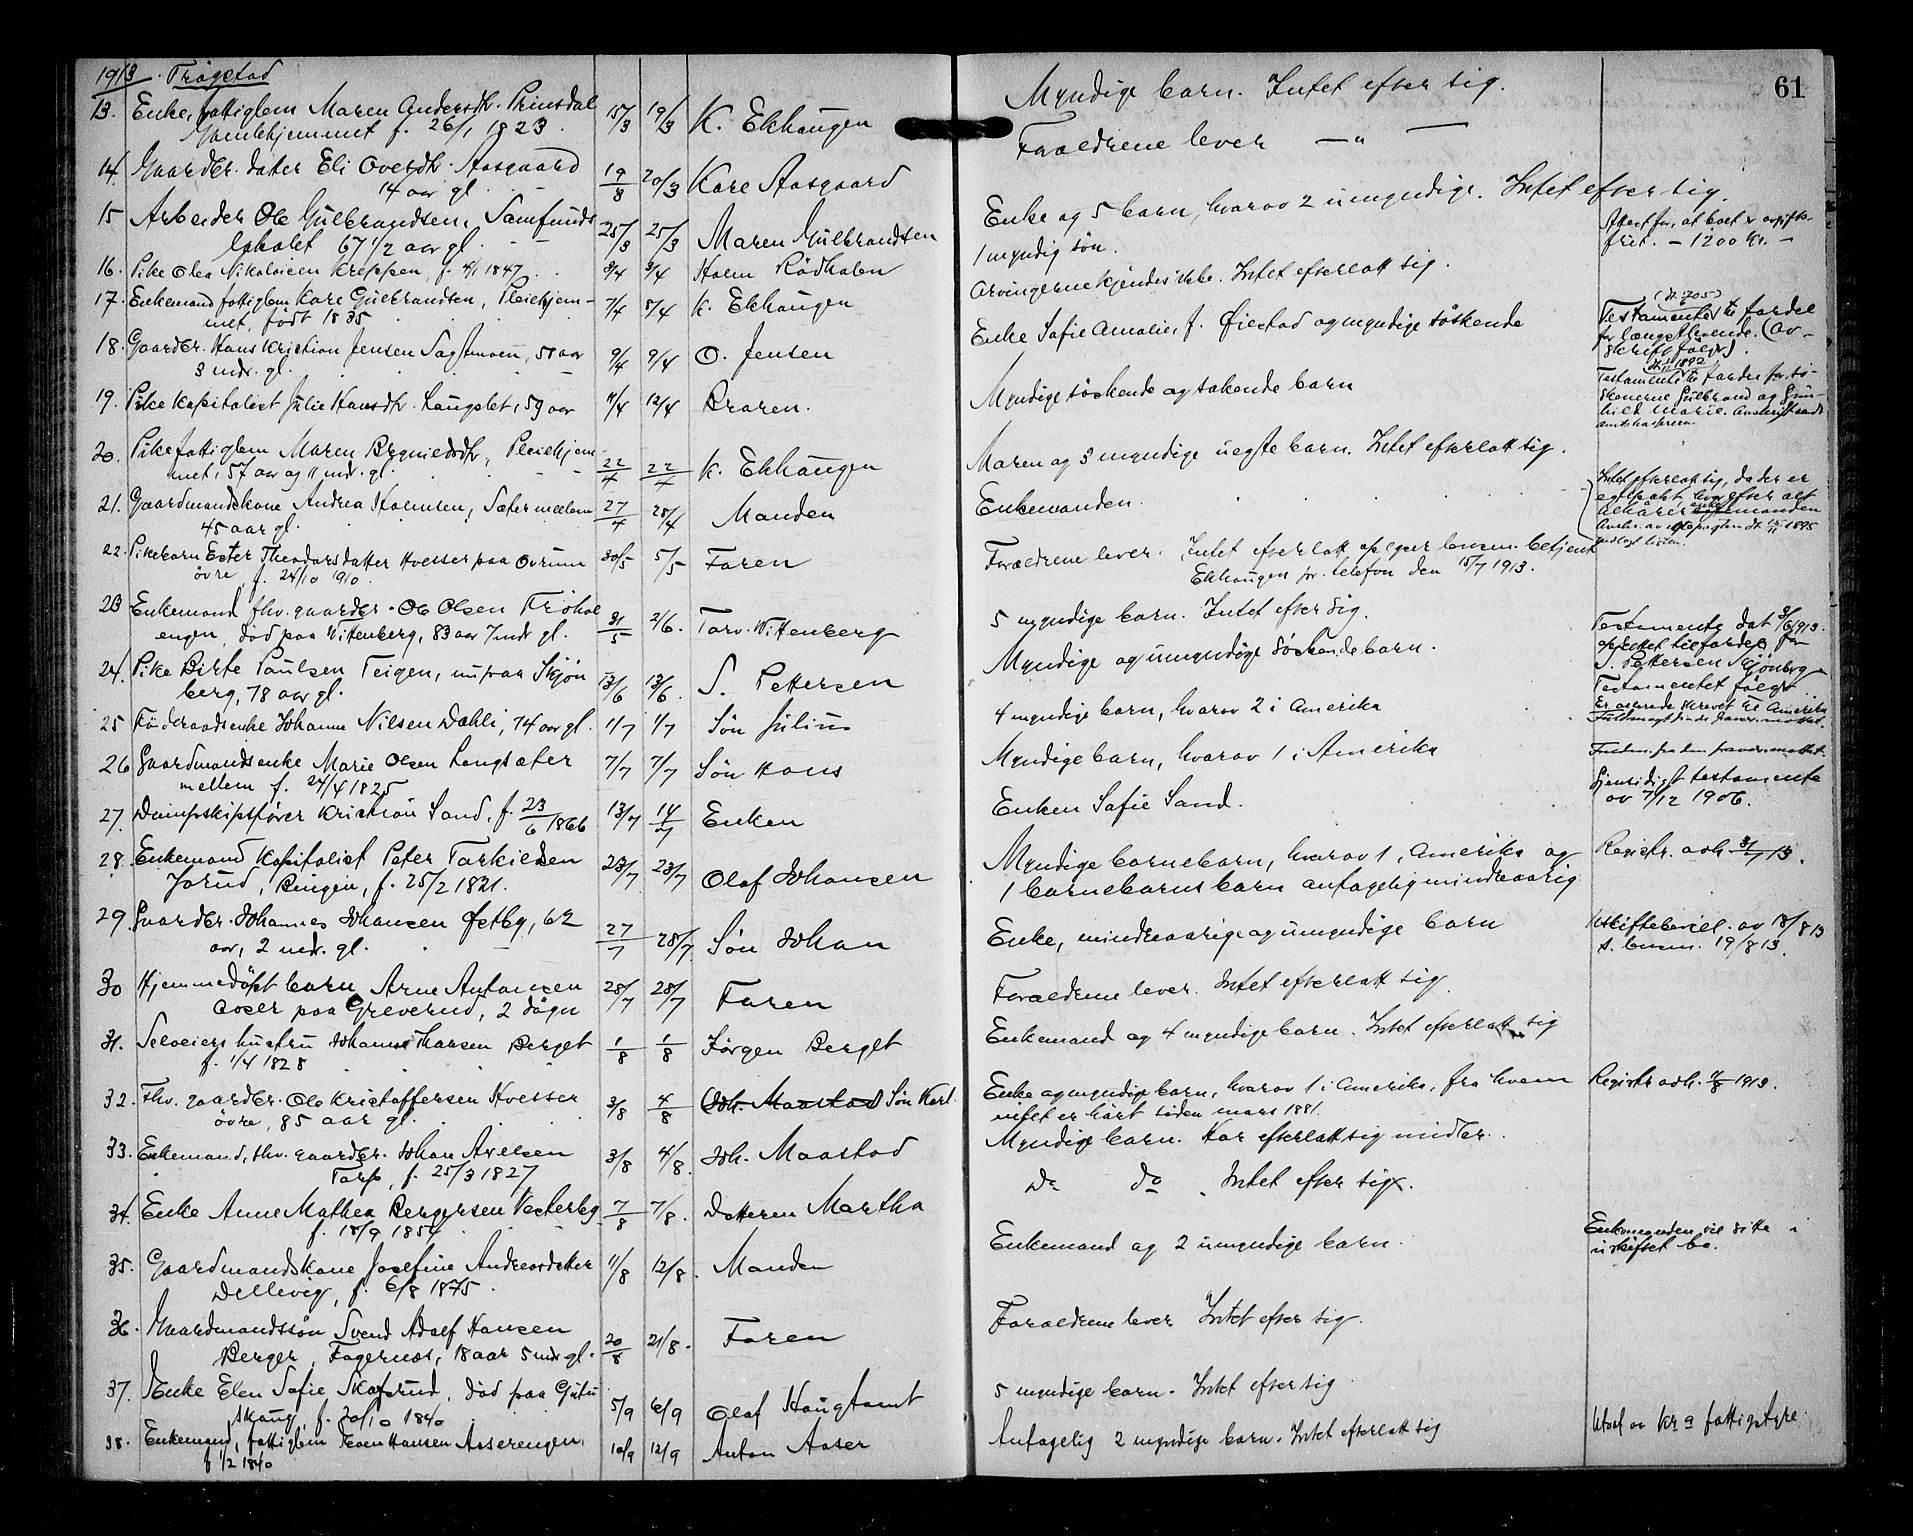 1913. Trøgstad
61
13. Enke, fattiglem Maren Andersdtr. Prinsdal 15/3 19/3 K. Ekhaugen Myndige barn. Intet efter sig.
Gamlehjemmet f. 26/1 1823.
14. Gaardbr. datter Eli Oversdtr. Aasgaard 19/3 20/3 Kare Aasgaard Forældrene lever — " —
14 aar gl.
15 Arbeider Ole Gulbrandsen, Samfunds 25/3 25/3 Maren Gulbrandsen Enke og 5 barn, hvorav 2 umyndige. Intet efter sig. Attest for, at boet er avgifts-
lokalet 67 1/2 aar gl. 1 myndig søn. frit. — 1200 kr. —
16. Pike Olea Nikolaisen Kreppen, f. 4/1 1847 9/4 Holm Rødholen Arvingerne kjendes ikke. Intet efterlatt sig.
17. Enkemand fattiglem Kare Gulbrandsen, Pleiehjem- 7/4 8/4 K. Ekhaugen
met, født 1835
18. Gaardbr. Hans Kristian Jensen 9/4 9/4 O. Jensen Enke Sofie Amalie, f. Øiestad og myndige søskende Testamente til fordel
3 mdr. gl. for længstlevende. (Av-
skrift følger).
19. Pike kapitalist Julie Hansdtr. Langslet, 59 aar 11/4 12/4 Broren. Myndige søskende og søskende barn Testamente til fordel for sø-
skenerne Gulbrand og Gun-
hild Marie.
20. Pike fattiglem Maren Brynildsdtr, Pleiehjem- 22/4 22/4 K. Ekhaugen Maren og 3 myndige uegte barn. Intet efterlatt sig.
met, 57 aar og 11 mdr. gl.
21. Gaardmandskone Andrea Holmsen, Sæter mellem 27/4 28/4 Manden Enkemanden. Intet efterlatt sig, da der er
45 aar gl. egtepakt hvorefter alt
tilhører enkemanden
22. Pikebarn Ester Theodorsdatter Hvesser paa Overum 30/5 5/5 Faren Forældrene lever. Intet efterlatt betjent
øvre, f. 24/10 1910. Ekhaugen pr. telefon den 15/7 1913.
23 Enkemand fhv. gaardbr. Ole Olsen Frøhol 31/5 2/6. Torv. Wittenberg 5 myndige barn. Intet efter sig.
engen, død paa Wittenberg, 83 aar 7 mdr gl.
24. Pike Birte Paulsen Teigen, Skjøn 13/6 13/6. S. Pettersen Myndige og umyndige søskendebarn. Testamente dat 3/6 1913.
berg, 78 aar gl. oprettet til fordel for
S. Pettersen Skjønberg
Testamentet følger
25 Føderaadsenke Johanne Nilsen Dahli, 74 aar gl. 1/7 1/7 Søn Julius 4 myndige barn, hvorav 2 i Amerika Er allerede skrevet til Amerika
26 Gaardmandsenke Marie Olsen Langsæter 7/7 7/7 Søn Hans Myndige barn, hvorav 1 i Amerika
mellem f. 24/4 1825
27. Dampskipsfører Kristian Sand, f. 23/6 1866 13/7 14/7 Enken Enken Sofie Sand. Gjensidigt testamente
av 7/12 1906.
28. Enkemand kapitalist Peter Torkildsen 23/7 23/7 Olaf Johansen Myndige barnebarn, hvorav 1 i Amerika og Registr. avh. 31/7 13.
Jorud, Bingen, f. 25/2 1821. 1 barnebarnsbarn antagelig mindreaarig
29. Gaardbr. Johannes Johansen Østby, 62 27/7 28/7 Søn Johan Enke, mindreaarige og umyndige barn Uskiftebevil. av 18/8 13
aar, 2 mdr. gl. 19/8 13.
30 Hjemmedøpt barn Arne Antonsen 28/7 28/7 Faren Forældrene lever. Intet efterlatt sig
Aaser paa Greverud, 2 døgn
31. Selveiers hustru Johanne Hansen Berget 1/8 1/8 Jørgen Berget Enkemand og 4 myndige barn. Intet efterlatt sig
f. 1/4 1828
32. Fhv. gaardbr. Ole Kristoffersen Hvesser 3/8 4/8 Joh. Maastad Søn Karl. Enke og myndige barn, hvorav 1 i Amerika, fra hvem Registr. avh. 1913.
øvre, 85 aar gl. intet er hørt siden mars 1881.
33. Enkemand, fhv. gaardbr. Johan Axelsen 3/8 4/8. Joh. Maastad Myndige barn. Har efterlatt sig midler.
Torp, f. 25/3 1827
34. Enke Anne Mathea Bergersen Vesterby 7/8 7/8. Datteren Martha Do do. Intet efter sig.
f. 18/9 1854
35. Gaardmandskone Josefine Andreasdatter 11/8 12/8. Manden Enkemand og 2 umyndige barn. Enkemanden vil sitte i
Dillevig, f. 6/8 1875. uskiftet bo.
36. Gaardmandssøn Svend Adolf Hansen 20/8 21/8. Faren Forældrene lever Intet efter sig.
Berger, Fagernæs, 18 aar 5 mdr gl.
37. Enke Elen Sofie Skofsrud, død paa 5/9 6/9 Olaf Haugtomt 5 myndige barn. Intet efter sig
skaug, f. 20/10 1840
38. Enkemand, fattiglem Hansen Aaserengen, 10/9 12/9 Anton Aaser Antagelig 2 myndige barn. Intet efterlatt sig Utsat av Kra fattigstyre.
f 1/2 1840